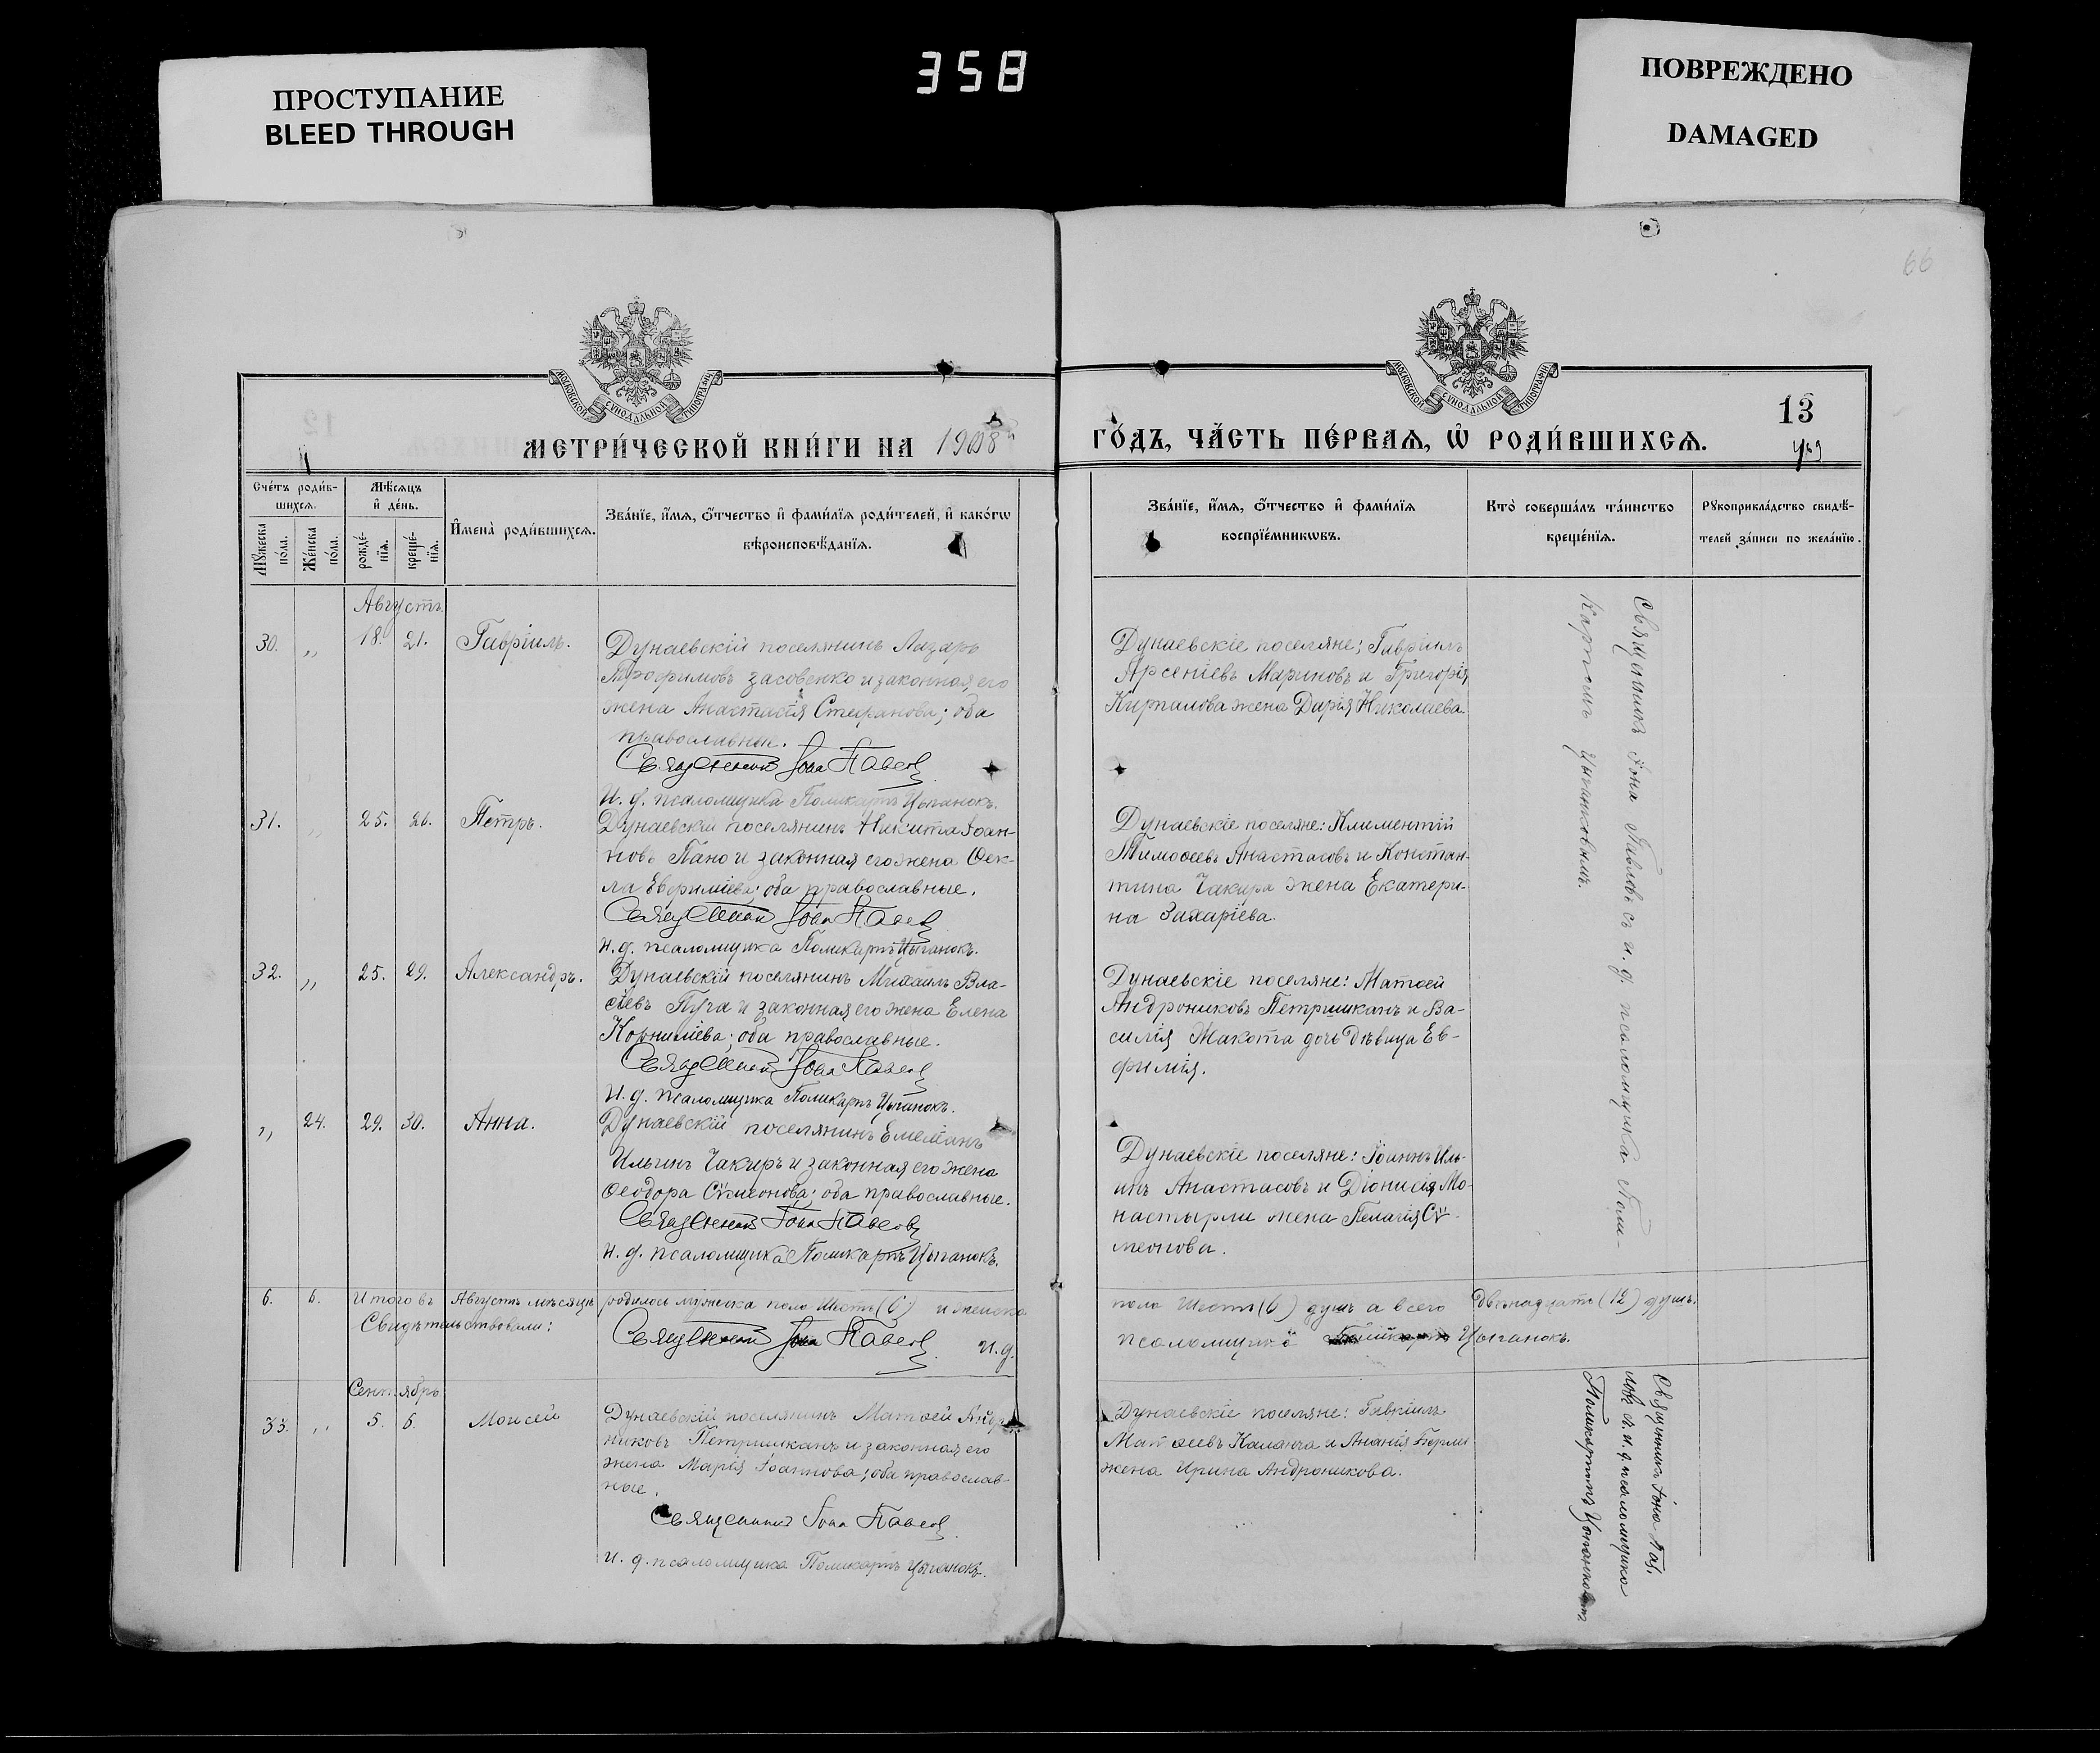 ПРОСТУПАНИЕ
BLEED THROUGH
358
ПОВРЕЖДЕНО
DAMAGED
66
МОСКОВСКОЙ СУНОДАЛЬНОЙ ТИПОГРАФІИ
МОСКОВСКОЙ СУНОДАЛЬНОЙ ТИПОГРАФІИ
13
МЕТРИ́ЧЕСКОЙ КНИ́ГИ НА 1908
ГО́ДЪ, ЧА́СТЬ ПЕ́РВАѦ, Ѡ҆ РОДИ́ВШИХСѦ.
Сче́тъ роди́в-
шихсѧ.
Мꙋ́жеска
по́ла.
Же́нска
по́ла.
Мѣ́сѧцъ
и҆ де́нь.
рожде́-
нїѧ.
креще́-
нїѧ.
И҆мена̀ роди́вшихсѧ.
Зва́нїе, и҆́мѧ, ѻ҆́тчество и҆ фами́лїѧ роди́телей, и҆ како́гѡ
вѣроисповѣ́данїѧ.
Зва́нїе, и҆́мѧ, ѻ҆́тчество и҆ фами́лїѧ
воспрїе́мникѡвъ.
Кто̀ соверша́лъ та́инство
креще́нїѧ.
Рꙋкоприкла́дство свидѣ́-
телей за́писи по жела́нїю.
Августъ
30. „ 18. 21. Гавріилъ.
Дунаевскій поселянинъ Лазарь
Трофимовъ Засовенко и законная его
жена Анастасія Стефанова; оба
православные.
Священникъ Іона Павлов
И. д. псаломщика Поликарпъ Цыганокъ.
Дунаевскіе поселяне: Гавріилъ
Арсеніевъ Мариновъ и Григорія
Кирпилова жена Дарія Николаева.
31. „ 25. 26. Петръ.
Дунаевскій поселянинъ Никита Іоан-
новъ Пано и законная его жена Ѳек-
ла Евфиміева; оба православные.
Священник Іона Павлов
и. д. псаломщика Поликарпъ Цыганокъ.
Дунаевскіе поселяне: Климентій
Тимоѳеевъ Анастасовъ и Констан-
тина Чакира жена Екатери-
на Захаріева.
32. „ 25. 29. Александръ.
Дунаевскій поселянинъ Михаилъ Вла-
сіевъ Пуга и законная его жена Елена
Корниліева; оба православные.
Священник Іона Павлов
И. д. псаломщика Поликарпъ Цыганокъ.
Дунаевскіе поселяне: Матѳей
Андрониковъ Петришканъ и Ва-
силія Жакота дочь дѣвица Ев-
фимія.
„ 24. 29. 30. Анна.
Дунаевскій поселянинъ Емеліанъ
Ильинъ Чакиръ и законная его жена
Ѳеодора Сѵмеонова; оба православные.
Священник Іона Павлов
и. д. псаломщика Поликарпъ Цыганокъ.
Дунаевскіе поселяне: Іоаннъ Иль-
инъ Анастасовъ и Діонисія Мо-
настырли жена Пелагія Сѵ-
меонова.
Священникъ Іона Павловъ съ и. д. псаломщика Поли-
карпомъ Цыганковымъ.
6. 6. Итого въ Августѣ мѣсяцѣ родилось мужеска пола шесть (6) и женска
пола шесть (6) душъ а всего двѣнадцать (12) душъ.
Свидѣтельствовали:
Священник Іона Павлов
и. д.
псаломщика Цыганокъ.
Сентябрь
33. „ 5. 6. Моисей
Дунаевскій поселянинъ Матѳей Андро-
никовъ Петришканъ и законная его
жена Марія Іоаннова; оба православ-
ные.
Священникъ Іона Павлов
и. д. псаломщика Поликарпъ Цыганокъ.
Дунаевскіе поселяне: Гавріилъ
Матѳеевъ Каланча и Ананія
жена Ирина Андроникова.
Священникъ Іона Пав-
ловъ съ и. д. псаломщика
Поликарпомъ Цыганковымъ